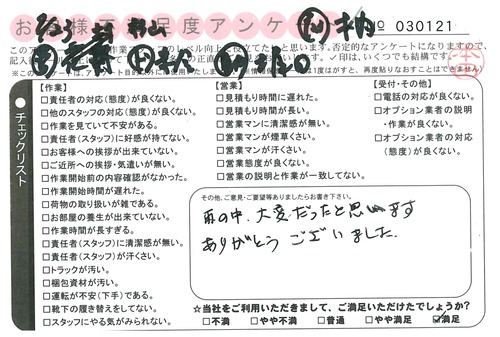 お客様 満足度アンケ
№ 030121
【作業】
□責任者の対応(態度)が良くない。
□他のスタッフの対応(態度)が良くない。
□作業を見ていて不安がある。
□責任者(スタッフ)に好感が持てない。
□お客様への挨拶が出来ていない。
□ご近所への挨拶・気遣いが無い。
□作業開始前の内容確認がなかった。
□作業開始時間が遅れた。
□荷物の取り扱いが雑である。
□お部屋の養生が出来ていない。
□作業時間が長すぎる。
□責任者(スタッフ)に清潔感が無い。
□責任者(スタッフ)が汗くさい。
□トラックが汚い。
□梱包資材が汚い。
□運転が不安(下手)である。
□靴下の履き替えをしてない。
□スタッフにやる気がみられない。
【営業】
□見積もり時間に遅れた。
□見積もり時間が長い。
□営業マンに清潔感が無い。
□営業マンが煙草くさい。
□営業マンが汗くさい。
□営業態度が良くない。
□営業の説明と作業が一致してない。
【受付・その他】
□電話の対応が良くない。
□オプション業者の説明
・作業が良くない。
□オプション業者の対応
(態度)が良くない。
チェックリスト
その他、ご意見・ご要望等ありましたらお書き下さい。
雨の中、大変だったと思います
ありがとう ございました。
☆当社をご利用いただきまして、ご満足いただけたでしょうか?
□不満 □やや不満 □普通 □やや満足 ☑満足